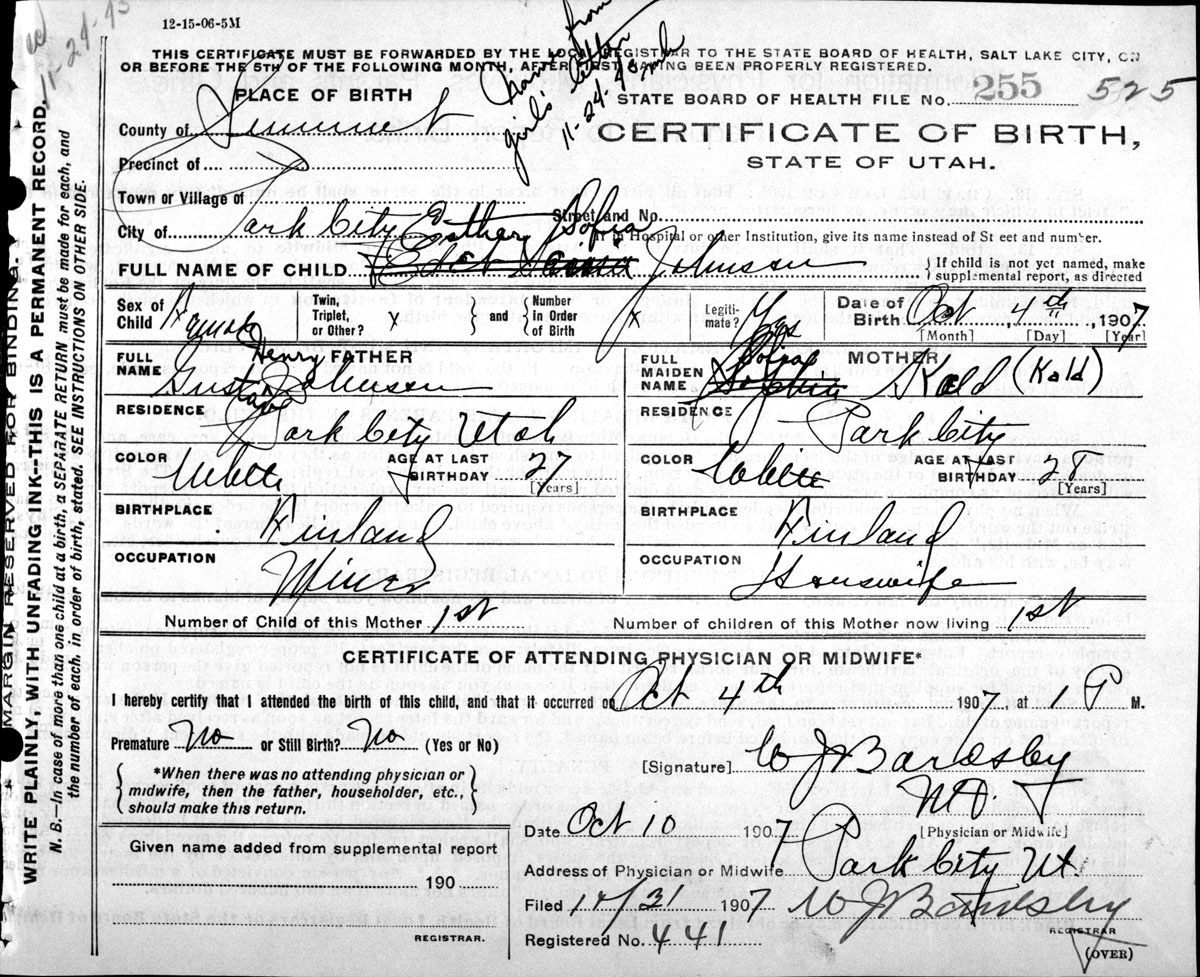 12-15-06-5M
THIS CERTIFICATE MUST BE FORWARDED BY THE LOCAL REGISTRAR TO THE STATE BOARD OF HEALTH, SALT LAKE CITY, ON
OR BEFORE THE 5TH OF THE FOLLOWING MONTH, AFTER FIRST HAVING BEEN PROPERLY REGISTERED.
from
girls letter
11.24.43
PLACE OF BIRTH
STATE BOARD OF HEALTH FILE No. 255 525
County of Summit
CERTIFICATE OF BIRTH,
Precinct of
STATE OF UTAH.
Town or Village of
Street and No.
City of Park City
If in Hospital or other Institution, give its name instead of Street and number.
Esther Sofia
FULL NAME OF CHILD Johnson
If child is not yet named, make supplemental report, as directed
Sex of Child Female Twin, Triplet, or Other? and Number in Order of Birth Legiti-mate? Yes Date of Birth Oct 4th, 1907
[Month] [Day] [Year]
FULL NAME FATHER Gustav Henry Johnson
FULL MAIDEN NAME MOTHER Sophia Kald (Kald)
RESIDENCE Park City Utah
RESIDENCE Park City
COLOR White AGE AT LAST BIRTHDAY 27 [Years]
COLOR White AGE AT LAST BIRTHDAY [Years]
BIRTHPLACE Finland
BIRTHPLACE Finland
OCCUPATION Miner
OCCUPATION Houswife
Number of Child of this Mother 1st
Number of children of this Mother now living 1st
CERTIFICATE OF ATTENDING PHYSICIAN OR MIDWIFE*
I hereby certify that I attended the birth of this child, and that it occurred on Oct 4th 1907 at P M.
Premature No or Still Birth? No (Yes or No)
*When there was no attending physician or midwife, then the father, householder, etc., should make this return.
[Signature] W J Bardsby
M D
[Physician or Midwife]
Date Oct 10 1907
Given name added from supplemental report
190
REGISTRAR.
Address of Physician or Midwife Park City Ut.
Filed 10/31 1907 W J Bardsby
REGISTRAR
Registered No. 441
(OVER)
MARGIN RESERVED FOR BINDING.
WRITE PLAINLY, WITH UNFADING INK-THIS IS A PERMANENT RECORD.
N. B.-In case of more than one child at a birth, a SEPARATE RETURN must be made for each, and
the number of each, in order of birth, stated. SEE INSTRUCTIONS ON OTHER SIDE.